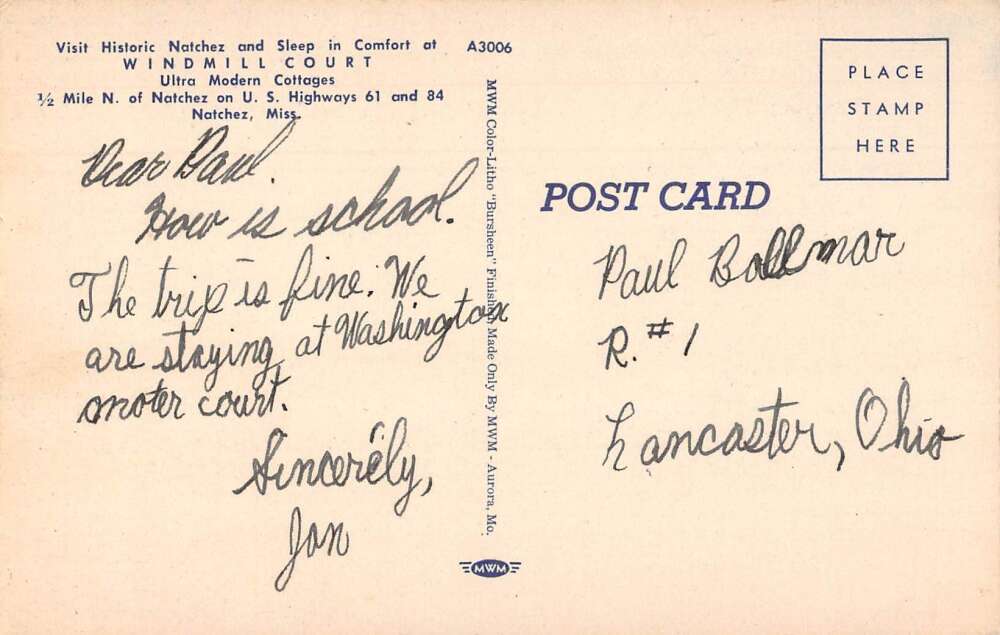 Visit Historic Natchez and Sleep in Comfort at
WINDMILL COURT
Ultra Modern Cottages
1/2 Mile N. of Natchez on U. S. Highways 61 and 84
Natchez, Miss.
A3006
Dear Paul.
How is school.
The trip is fine. We
are staying at Washington
moter court.
Sincerely,
Jon
MWM Color-Litho "Bursheen" Finished, Made Only By MWM - Aurora, Mo.
MWM
PLACE
STAMP
HERE
POST CARD
Paul Bollmar
R. #1
Lancaster, Ohio